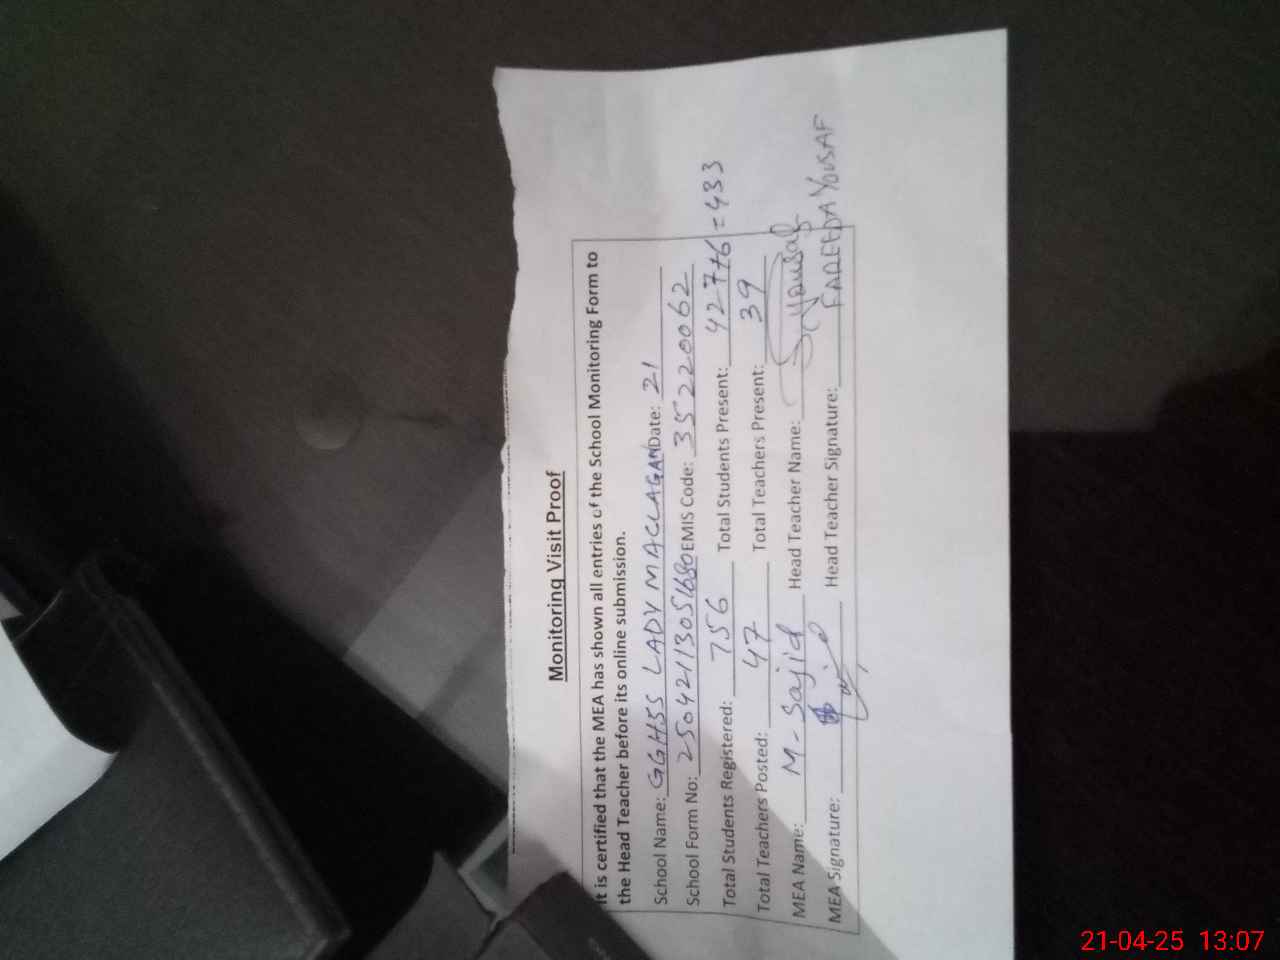 Monitoring Visit Proof
It is certified that the MEA has shown all entries of the School Monitoring Form to
the Head Teacher before its online submission.
School Name: GGHSS LADY MACLAGAN Date: 21
School Form No: 25042113051680 EMIS Code: 35220062
Total Students Registered: 756 Total Students Present: 427+6=433
Total Teachers Posted: 47 Total Teachers Present: 39
MEA Name: M-Sajid Head Teacher Name: Yousaf
MEA Signature: Head Teacher Signature: FAREEDA YOUSAF
21-04-25 13:07